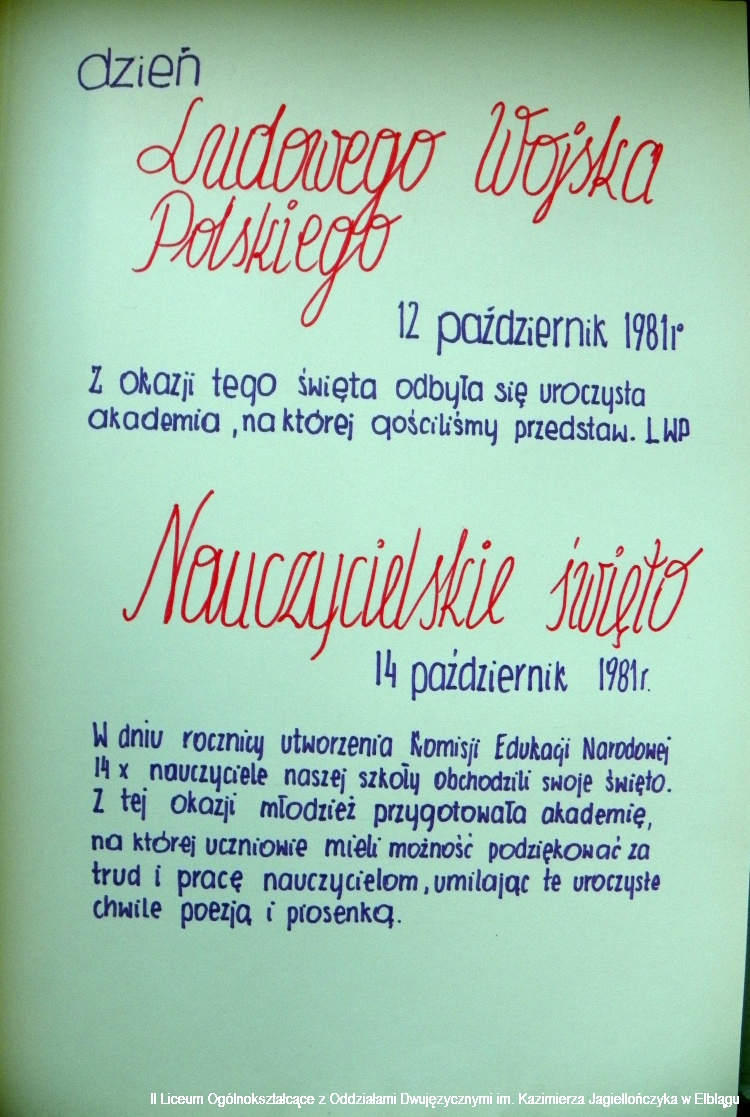 dzień
Ludowego Wojska
Polskiego
12 październik 1981r
Z okazji tego święta odbyła się uroczysta
akademia, na której gościliśmy przedstaw. LWP
Nauczycielskie święto
14 październik 1981r.
W dniu rocznicy utworzenia Komisji Edukacji Narodowej
14 x nauczyciele naszej szkoły obchodzili swoje święto.
Z tej okazji młodzież przygotowała akademię,
na której uczniowie mieli możność podziękować za
trud i pracę nauczycielom, umilając te uroczyste
chwile poezją i piosenką.
II Liceum Ogólnokształcące z Oddziałami Dwujęzycznymi im. Kazimierza Jagiellończyka w Elblągu